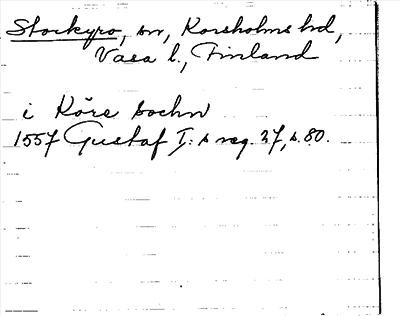 Storkyro, sn, Korsholms hd,
Vasa l., Finland
i Köre sochn
1557 Gustaf I:s reg. 27, s. 80.